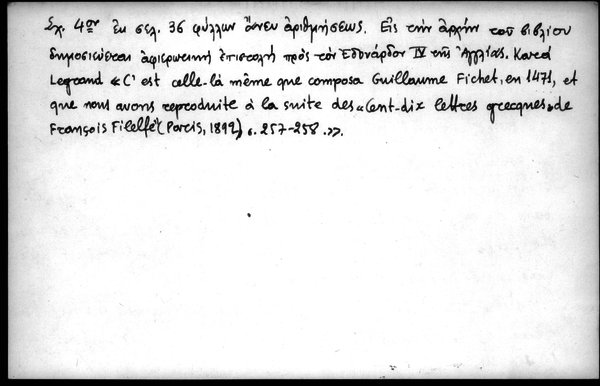 Σχ. 4ον ἐκ σελ. 36 φύλλων ἄνευ ἀριθμήσεως. Εἰς τὴν ἀρχὴν τοῦ βιβλίου
δημοσιεύεται ἀφιερωτικὴ ἐπιστολὴ πρὸς τὸν Ἐδουάρδον IV τῆς Ἀγγλίας. Κατὰ
Legrand «C' est celle-là même que composa Guillaume Fichet, en 1471, et
que nous avons reproduite à la suite des «Cent-dix lettres grecques» de
François Filelfe» (Paris, 1892) σ. 257-258.».